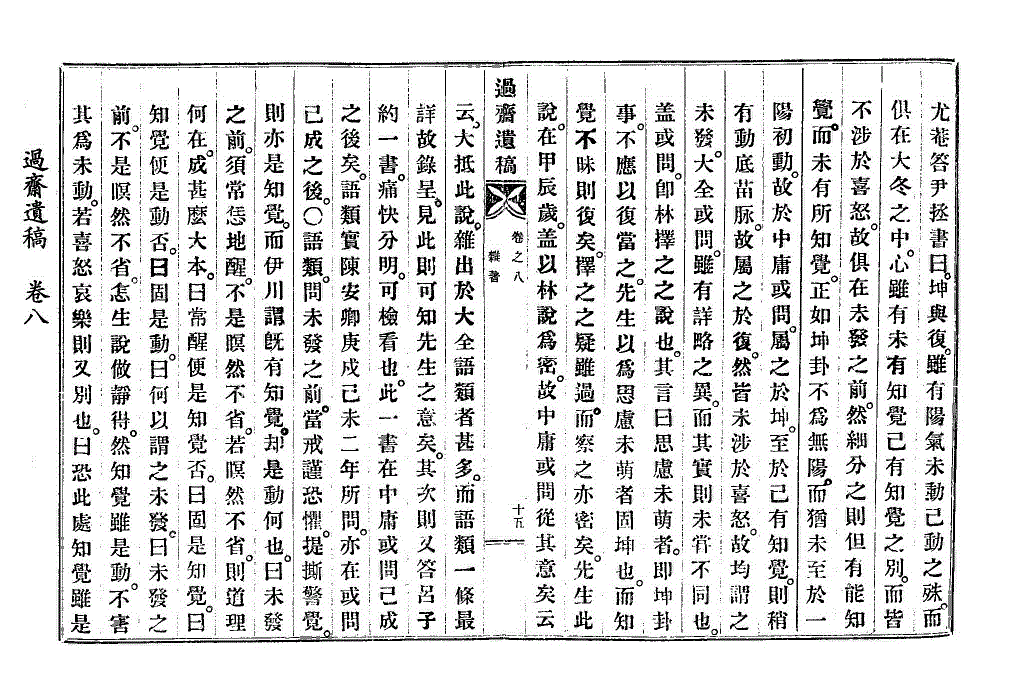 尤菴答尹拯書曰。坤與復。雖有陽氣未動已動之殊。而
俱在大冬之中。心雖有未有知覺已有知覺之別。而皆
不涉於喜怒。故俱在未發之前。然細分之則但有能知
覺。而未有所知覺。正如坤卦不爲無陽。而猶未至於一
陽初動。故於中庸或問。屬之於坤。至於已有知覺。則稍
有動底苗脉。故屬之於復。然皆未涉於喜怒。故均謂之
未發。大全或問。雖有詳略之異。而其實則未甞不同也。
盖或問。卽林擇之之說也。其言曰思慮未萌者。卽坤卦
事。不應以復當之。先生以爲思慮未萌者固坤也。而知
覺不昧則復矣。擇之之疑雖過。而察之亦密矣。先生此
說在甲辰歲。盖以林說爲密。故中庸或問從其意矣云
過齋遺稿
卷之八
雜著
十五
云。大抵此說。雜出於大全語類者甚多。而語類一條最
詳故錄呈。見此則可知先生之意矣。其次則又答呂子
約一書。痛快分明。可檢看也。此一書在中庸或問已成
之後矣。語類實陳安卿庚戌己未二年所問。亦在或問
已成之後。〇語類。問未發之前。當戒謹恐懼。提撕警覺。
則亦是知覺。而伊川謂旣有知覺。却是動何也。曰未發
之前。須常恁地醒。不是瞑然不省。若瞑然不省。則道理
何在。成甚麽大本。曰常醒便是知覺否。曰固是知覺。曰
知覺便是動否。曰固是動。曰何以謂之未發。曰未發之
前。不是瞑然不省。怎生說做靜得。然知覺雖是動。不害
其爲未動。若喜怒哀樂則又別也。曰恐此處知覺雖是
過齋遺稿 卷八